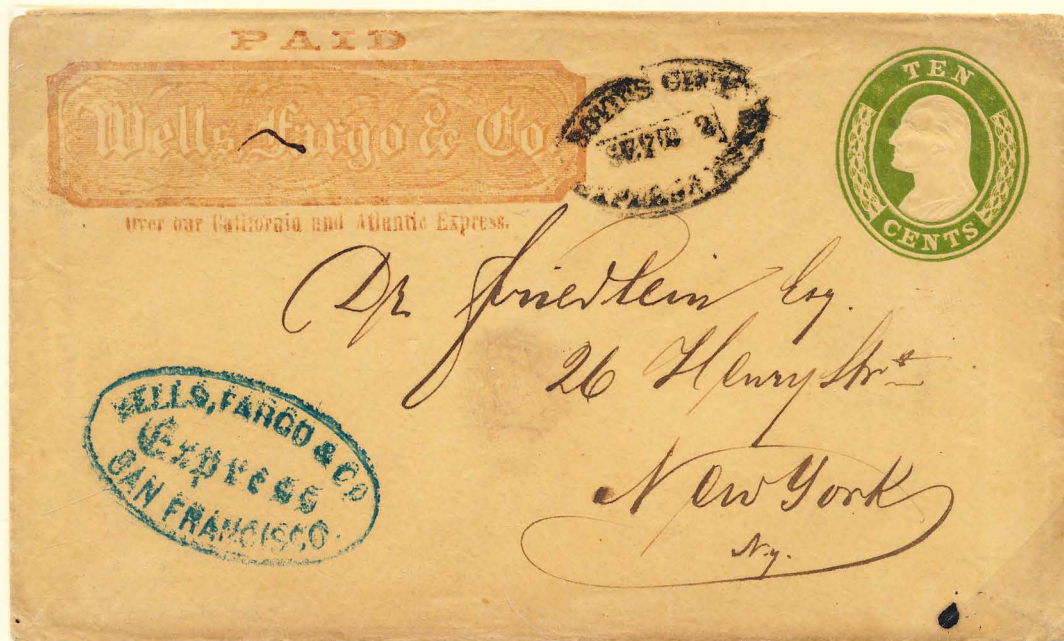 PAID
Wells, Fargo & Co.
Over our California and Atlantic Express.
TEN
CENTS
Dr Friedlein Esq.
26 Henry Strt
New York
Ny.
WELLS, FARGO & CO
Express
SAN FRANCISCO.